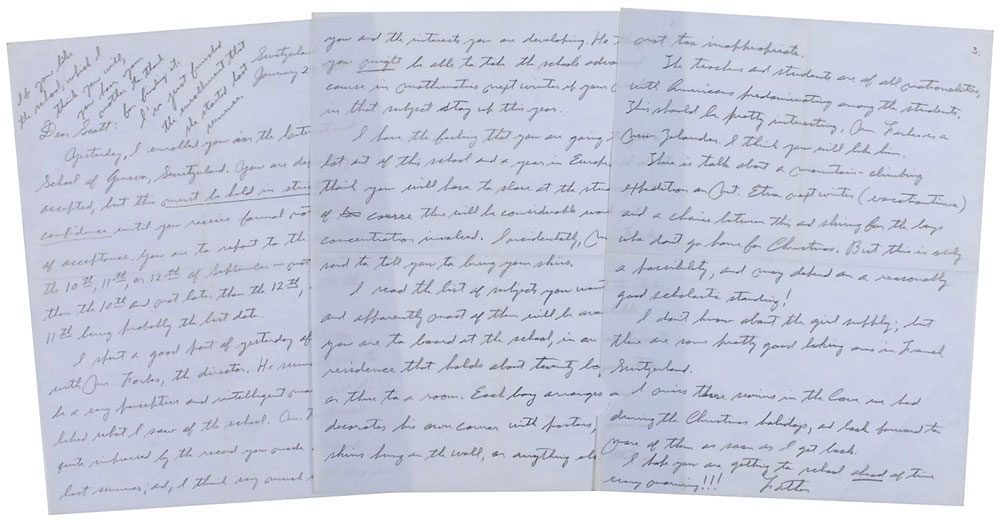 If you like
the school, which I
think you will,
you can you
mother to thank
for finding it.
I've just founded
the enrollment that
she started last
summer.
Switzerland
January 2
Dear Scott:
Yesterday, I enrolled you in the Inter
School of Geneva, Switzerland. You are de
accepted, but this must be held in stric
confidence until you receive formal not
of acceptance. You are to report to the
the 10th, 11th, or 12th of September — not
than the 10th and not later than the 12th,
11th being probably the best date.
I spent a good part of yesterday af
with Mr. Forbes, the director. He seem
be a very perceptive and intelligent ma
liked what I saw of the school. Mr. F
quite impressed by the record you made
last summer, and, I think very much i
you and the interests you are developing. He
you might be able to take the schools advan
course in mathematics next winter if your
in that subject stay up this year.
I have the feeling that you are going
lot out of this school and a year in Europe
think you will have to slave at the stud
of course there will be considerable wor
concentration involved. Incidentally, Mr.
said to tell you to bring your skiis.
I read the list of subjects you want
and apparently most of them will be avai
you are to board at the school, in an
residence that holds about twenty bo
or three to a room. Each boy arranges a
decorates his own corner with posters,
skins hung on the wall, or anything els
3.
not too inappropriate.
The teachers and students are of all nationalities,
with Americans predominating among the students.
This should be pretty interesting. Mr. Forbes is a
New Zelander. I think you will like him.
There is talk about a mountain-climbing
expedition on Mt. Etna next winter (vacation time)
and a choice between this and skiing for the boys
who don't go home for Christmas. But this is only
a possibility, and may depend on a reasonably
good scholastic standing!
I don't know about the girl supply, but
there are some pretty good looking ones in French
Switzerland.
I miss those swims in the Cove we had
during the Christmas holidays, and look forward to
more of them as soon as I get back.
I hope you are getting to school ahead of time
every morning!!!
Father